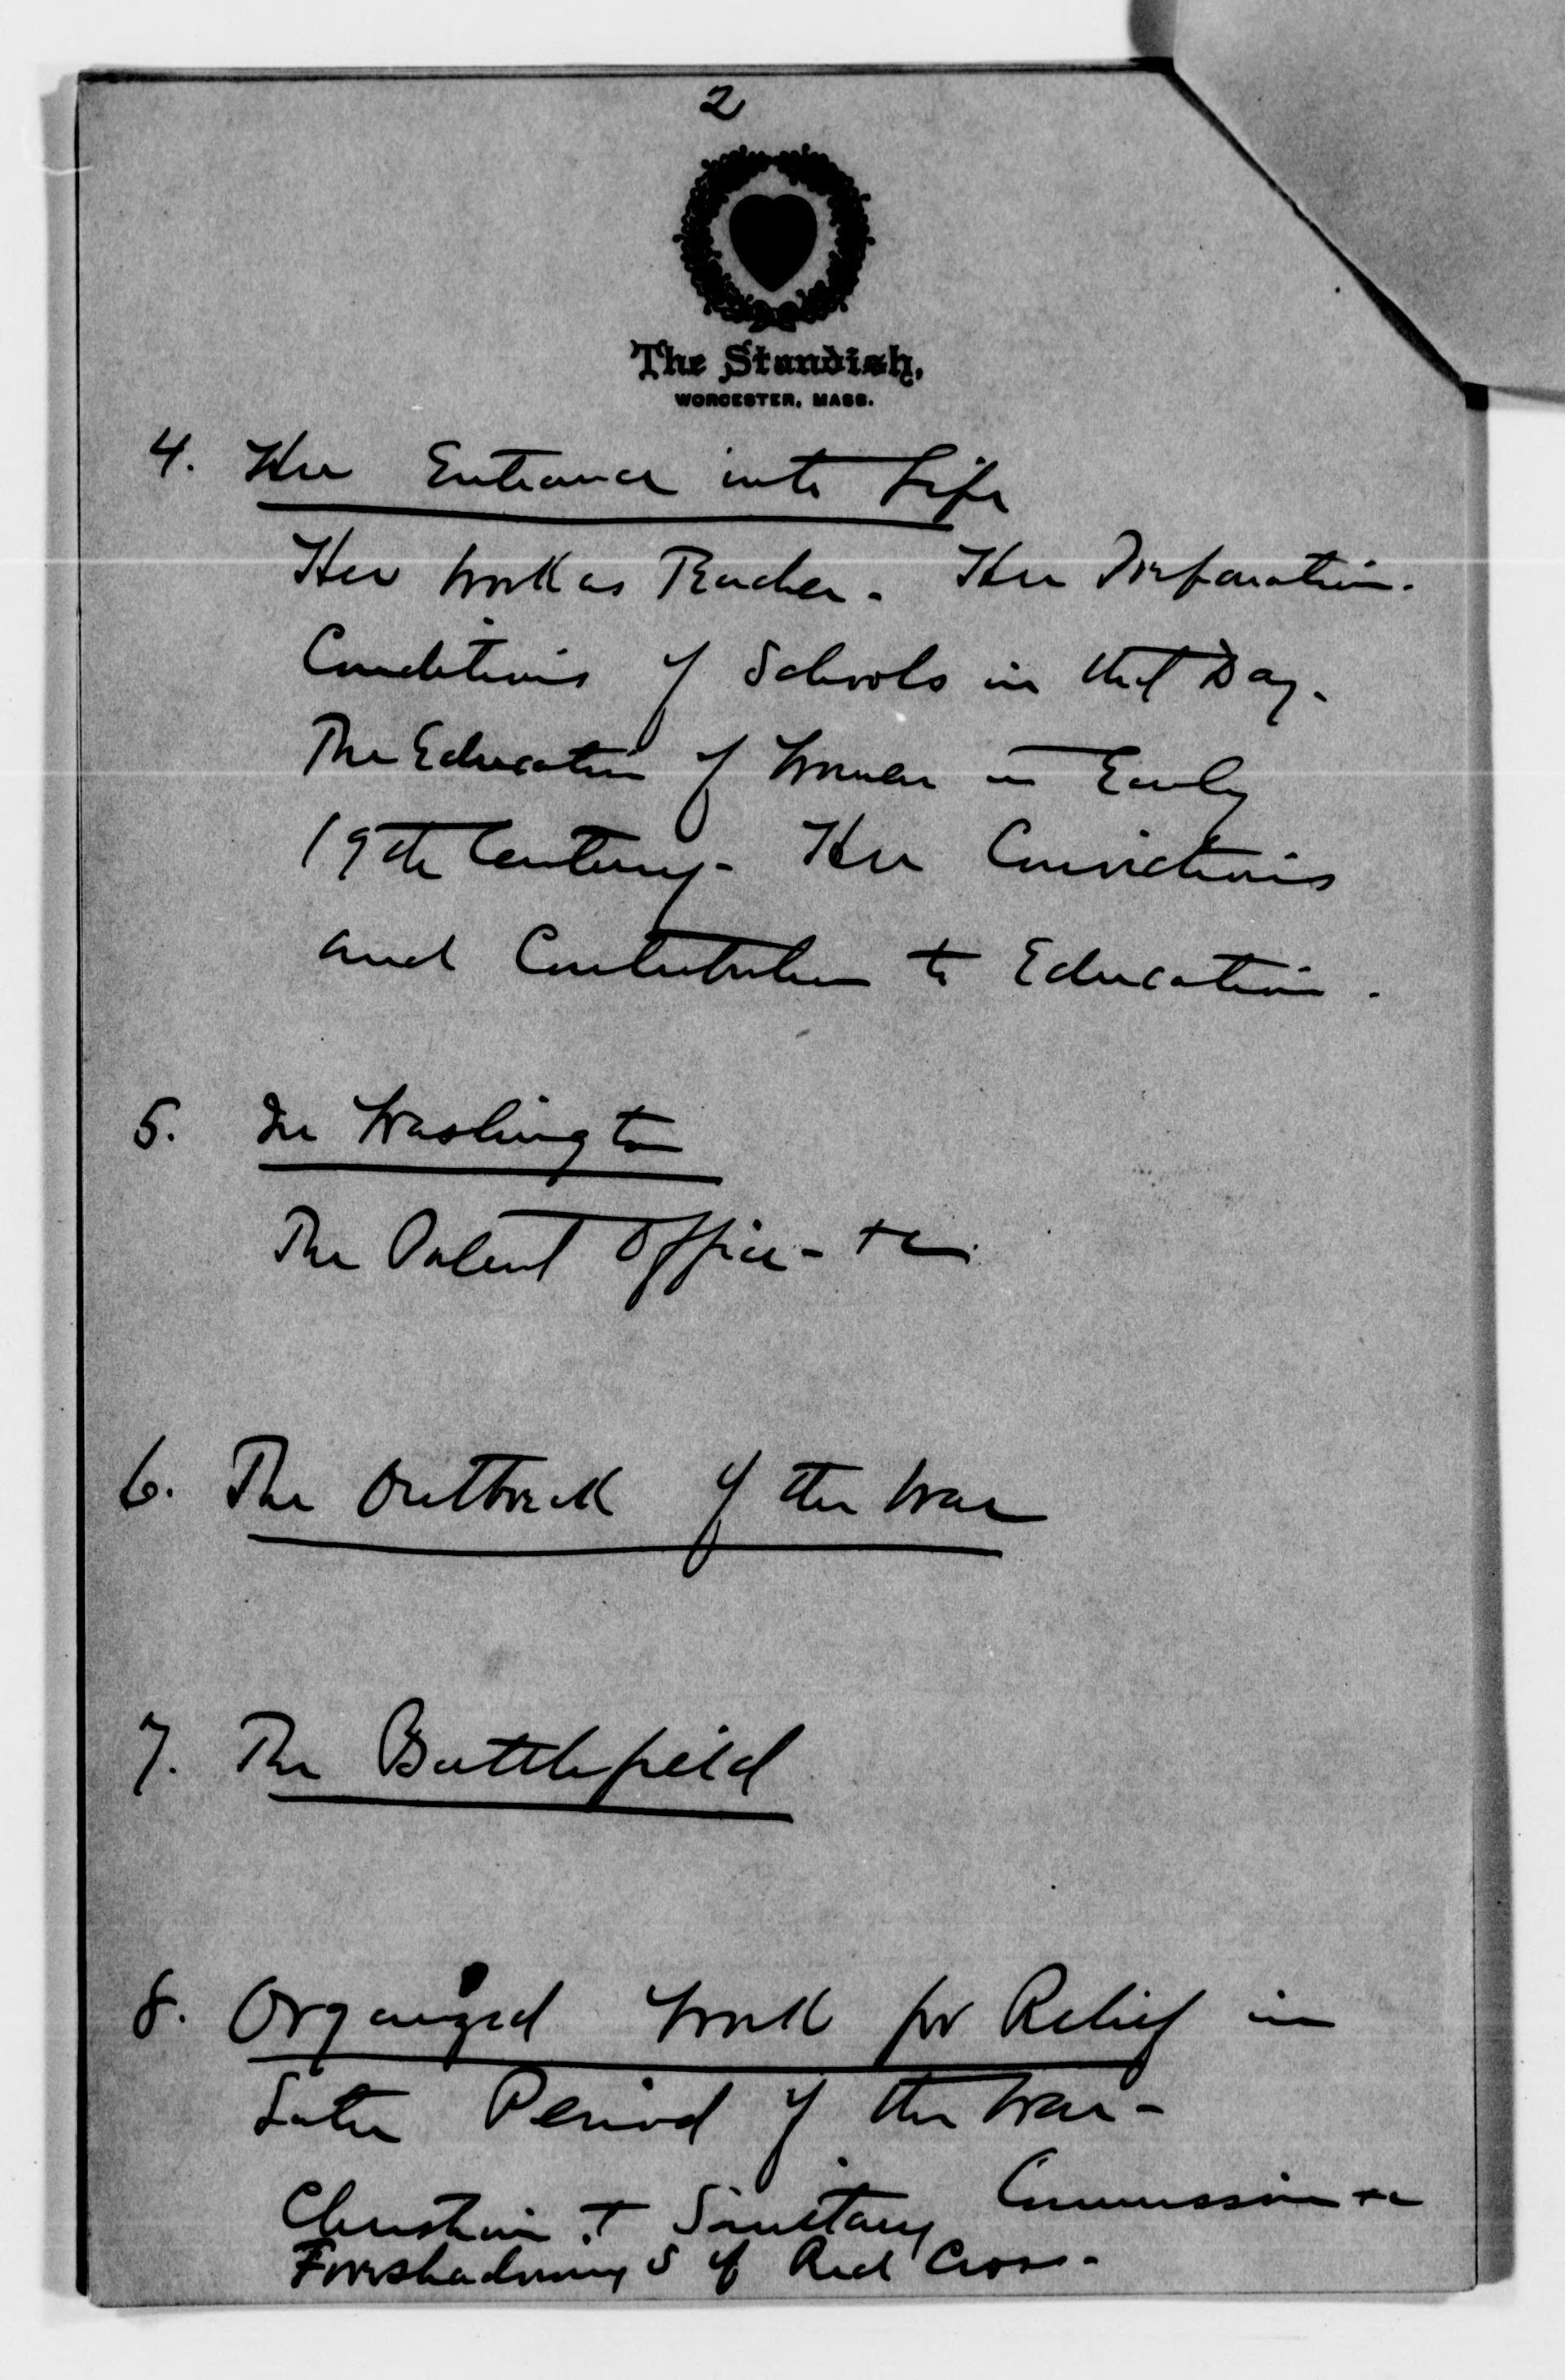 2
The Standish,
WORCESTER, MASS.
4. Her Entrance into Life
Her Work as Teacher. Her Preparation.
Conditions of Schools in that Day.
The Education of Women in Early
19th Century- Her Convictions
and Contribution to Education.
5. In Washington
The Patent Office- +c.
6. The Outbreak of the War
7. The Battlefield
8. Organized Work for Relief in
Later Period of the War-
Christian + Sanitary Commission +c
Foreshadowings of Red Cross-